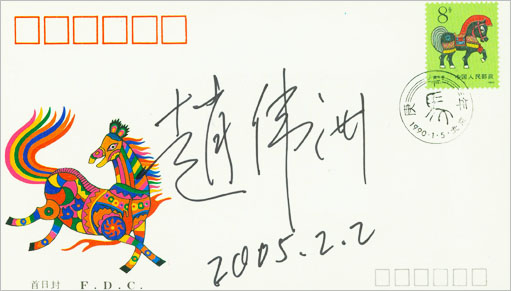 8分
中国人民邮政
庚午年
1990.1.5.
趙伟洲
2005.2.2
首日封 F.D.C.